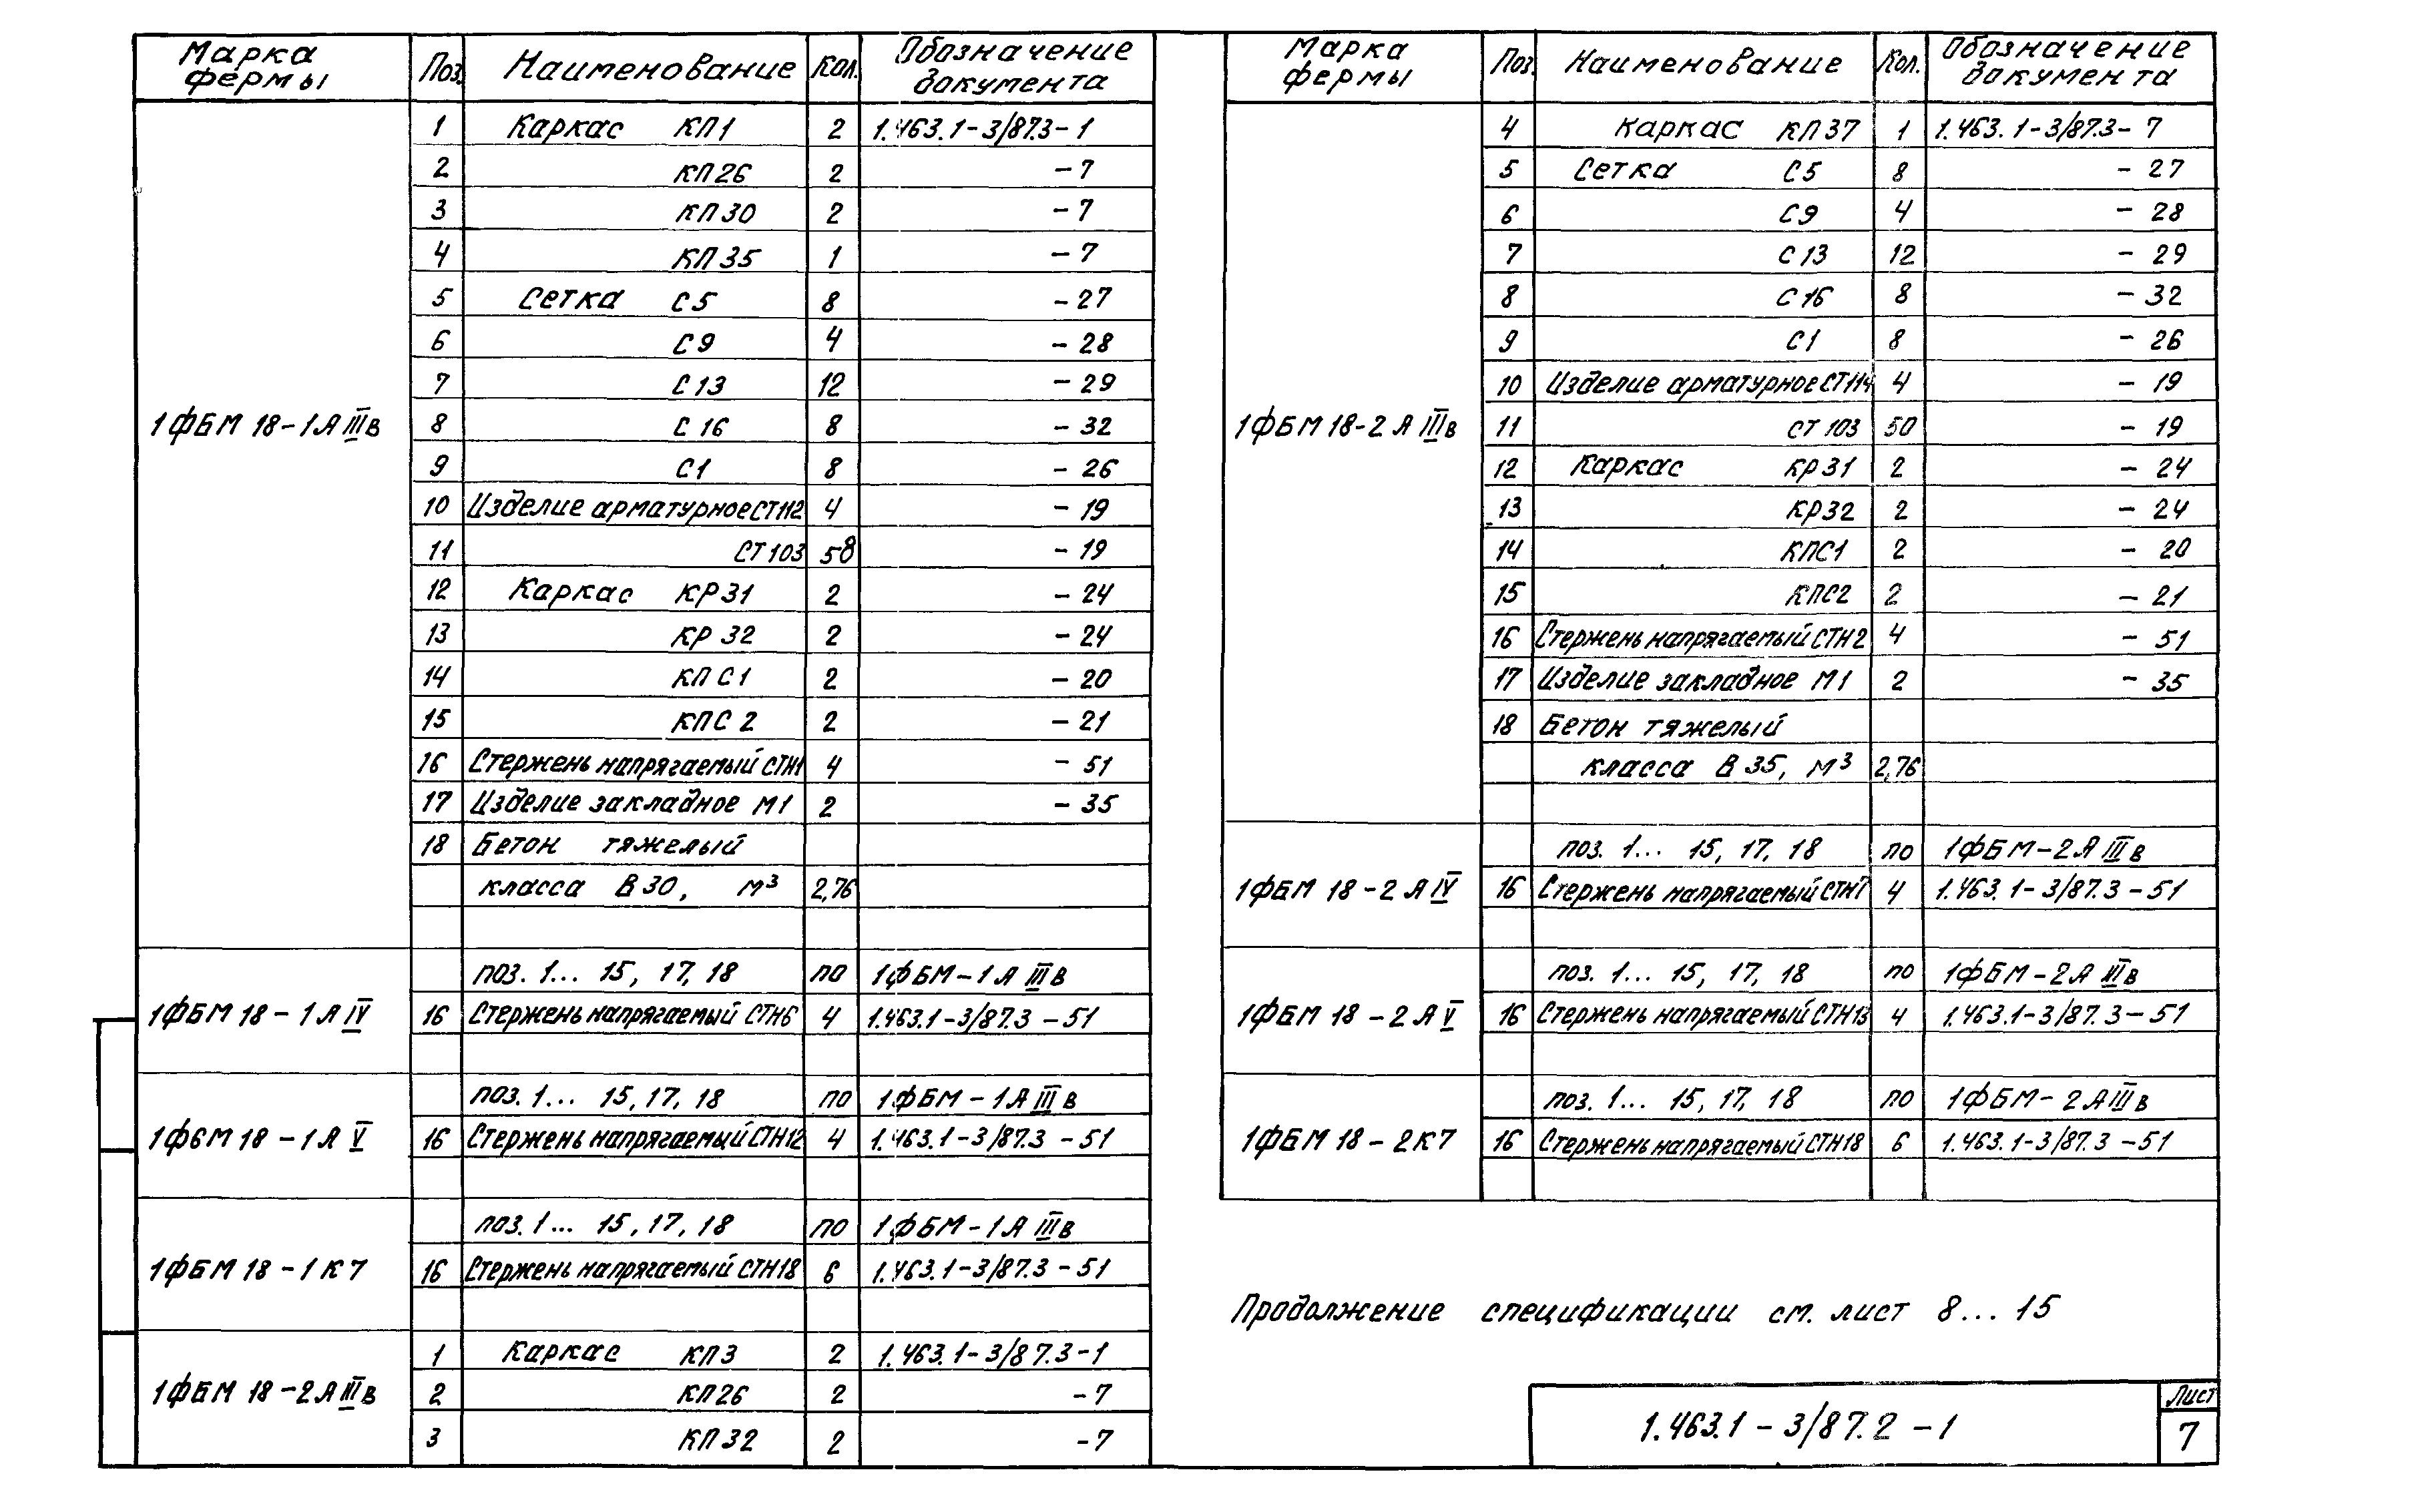 Марка фермы | Поз. | Наименование | Кол. | Обозначение документа
1ФБМ 18-1АIIIв | 1 | Каркас КП1 | 2 | 1.463.1-3/87.3-1
2 | КП26 | 2 | -7
3 | КП30 | 2 | -7
4 | КП35 | 1 | -7
5 | Сетка С5 | 8 | -27
6 | С9 | 4 | -28
7 | С13 | 12 | -29
8 | С16 | 8 | -32
9 | С1 | 8 | -26
10 | Изделие арматурное СТ112 | 4 | -19
11 | СТ103 | 58 | -19
12 | Каркас КР31 | 2 | -24
13 | КР32 | 2 | -24
14 | КПС1 | 2 | -20
15 | КПС2 | 2 | -21
16 | Стержень напрягаемый СТН1 | 4 | -51
17 | Изделие закладное М1 | 2 | -35
18 | Бетон тяжелый
класса В30, м³ | 2,76
1ФБМ 18-1АIV | поз. 1... 15, 17, 18 | по | 1ФБМ-1АIIIв
16 | Стержень напрягаемый СТН6 | 4 | 1.463.1-3/87.3-51
1ФБМ 18-1АV | поз. 1... 15, 17, 18 | по | 1ФБМ-1АIIIв
16 | Стержень напрягаемый СТН12 | 4 | 1.463.1-3/87.3-51
1ФБМ 18-1К7 | поз. 1... 15, 17, 18 | по | 1ФБМ-1АIIIв
16 | Стержень напрягаемый СТН18 | 6 | 1.463.1-3/87.3-51
1ФБМ 18-2АIIIв | 1 | Каркас КП3 | 2 | 1.463.1-3/87.3-1
2 | КП26 | 2 | -7
3 | КП32 | 2 | -7
Марка фермы | Поз. | Наименование | Кол. | Обозначение документа
1ФБМ 18-2АIIIв | 4 | Каркас КП37 | 1 | 1.463.1-3/87.3-7
5 | Сетка С5 | 8 | -27
6 | С9 | 4 | -28
7 | С13 | 12 | -29
8 | С16 | 8 | -32
9 | С1 | 8 | -26
10 | Изделие арматурное СТ114 | 4 | -19
11 | СТ103 | 50 | -19
12 | Каркас КР31 | 2 | -24
13 | КР32 | 2 | -24
14 | КПС1 | 2 | -20
15 | КПС2 | 2 | -21
16 | Стержень напрягаемый СТН2 | 4 | -51
17 | Изделие закладное М1 | 2 | -35
18 | Бетон тяжелый
класса В35, м³ | 2,76
1ФБМ 18-2АIV | поз. 1... 15, 17, 18 | по | 1ФБМ-2АIIIв
16 | Стержень напрягаемый СТН7 | 4 | 1.463.1-3/87.3-51
1ФБМ 18-2АV | поз. 1... 15, 17, 18 | по | 1ФБМ-2АIIIв
16 | Стержень напрягаемый СТН13 | 4 | 1.463.1-3/87.3-51
1ФБМ 18-2К7 | поз. 1... 15, 17, 18 | по | 1ФБМ-2АIIIв
16 | Стержень напрягаемый СТН18 | 6 | 1.463.1-3/87.3-51
Продолжение спецификации см. лист 8...15
1.463.1-3/87.2-1
Лист
7